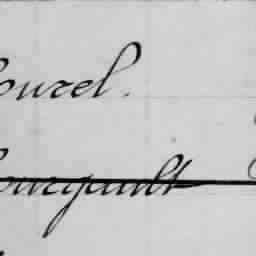 ourel.
ourgault